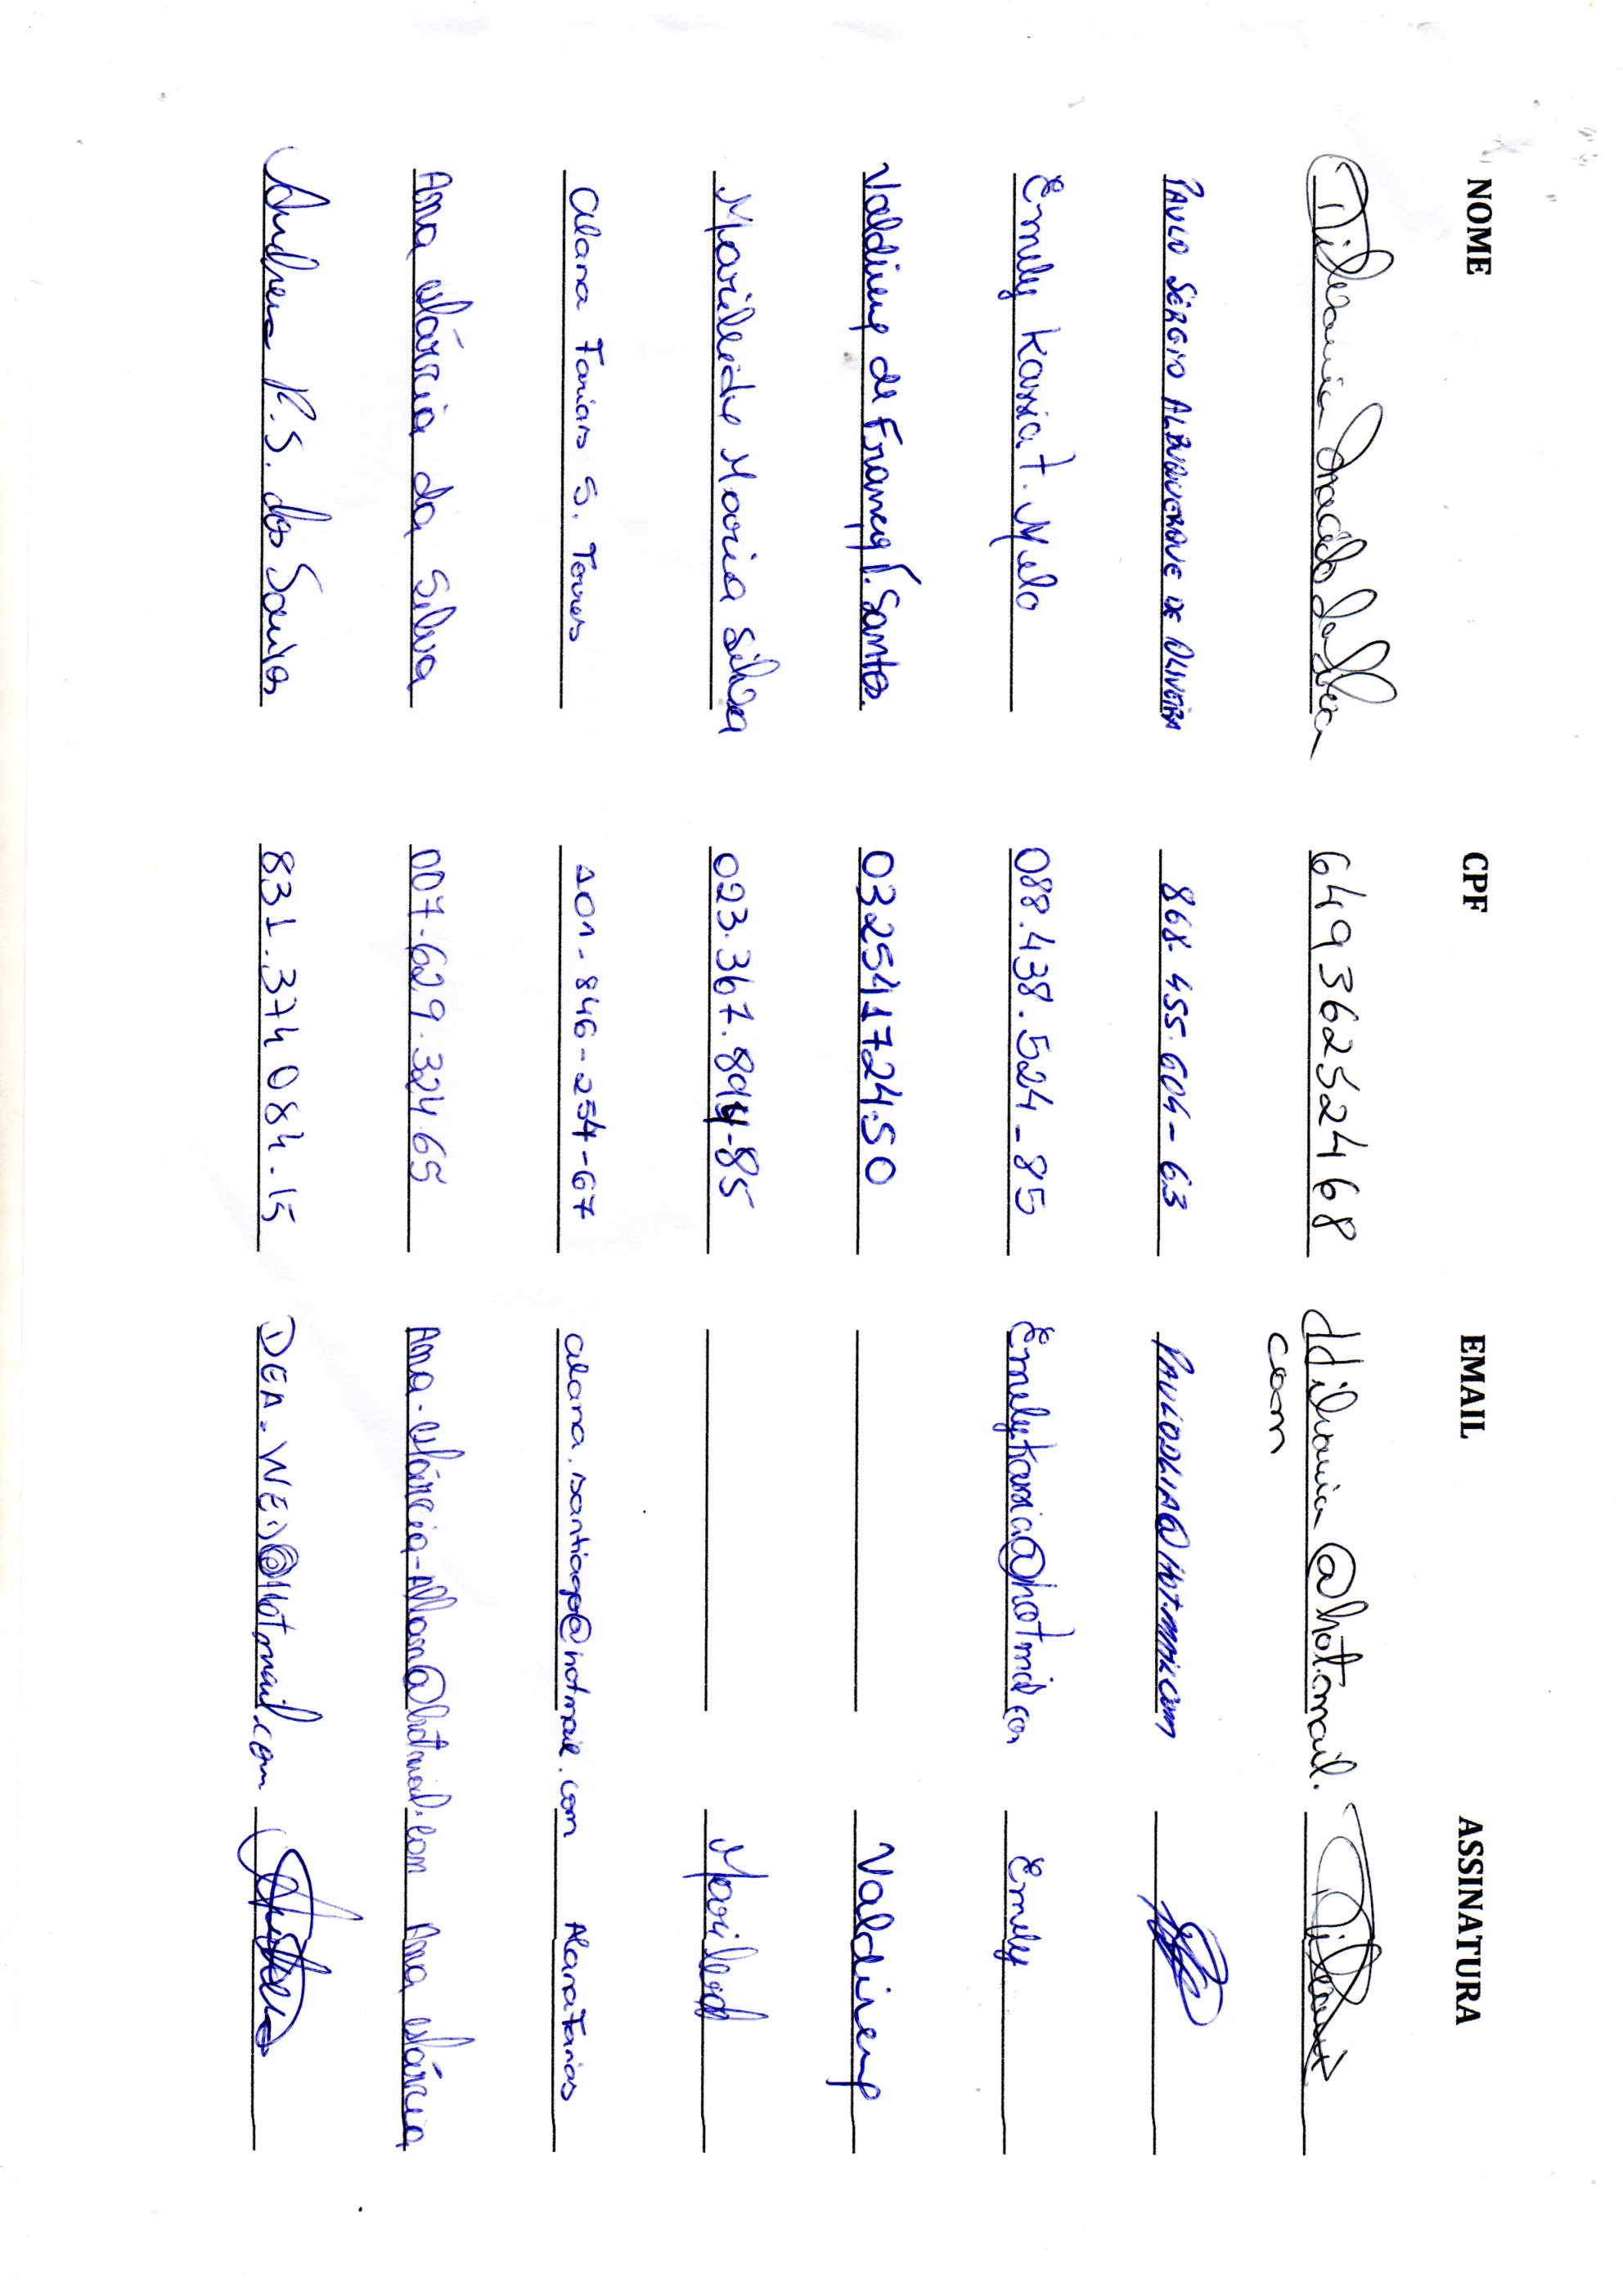 NOME CPF EMAIL ASSINATURA
64936252468 ddilvania@hot.mail.
com
PAULO SÉRGIO ALBUQUERQUE DE OLIVEIRA 868.455.604-63 PAULODLIA@HOT.MAIL.COM
Emily Kassia T. Melo 088.438.524-85 Emilykassia@hotmail.com Emily
Valdirene de França V. Santos. 032541724.50 Valdirene
Marileide Maria Silva 023.367.894-85 Marileid
Alana Farias S. Torres 101-846-254-67 alana.santiago@hotmail.com Alana Farias
Ana Márcia da Silva 007.629.324.65 Ana-Márcia-Allan@hotmail.com Ana Márcia
Andrea R.S. dos Santos 831.374084-15 DEA.WED@Hotmail.com